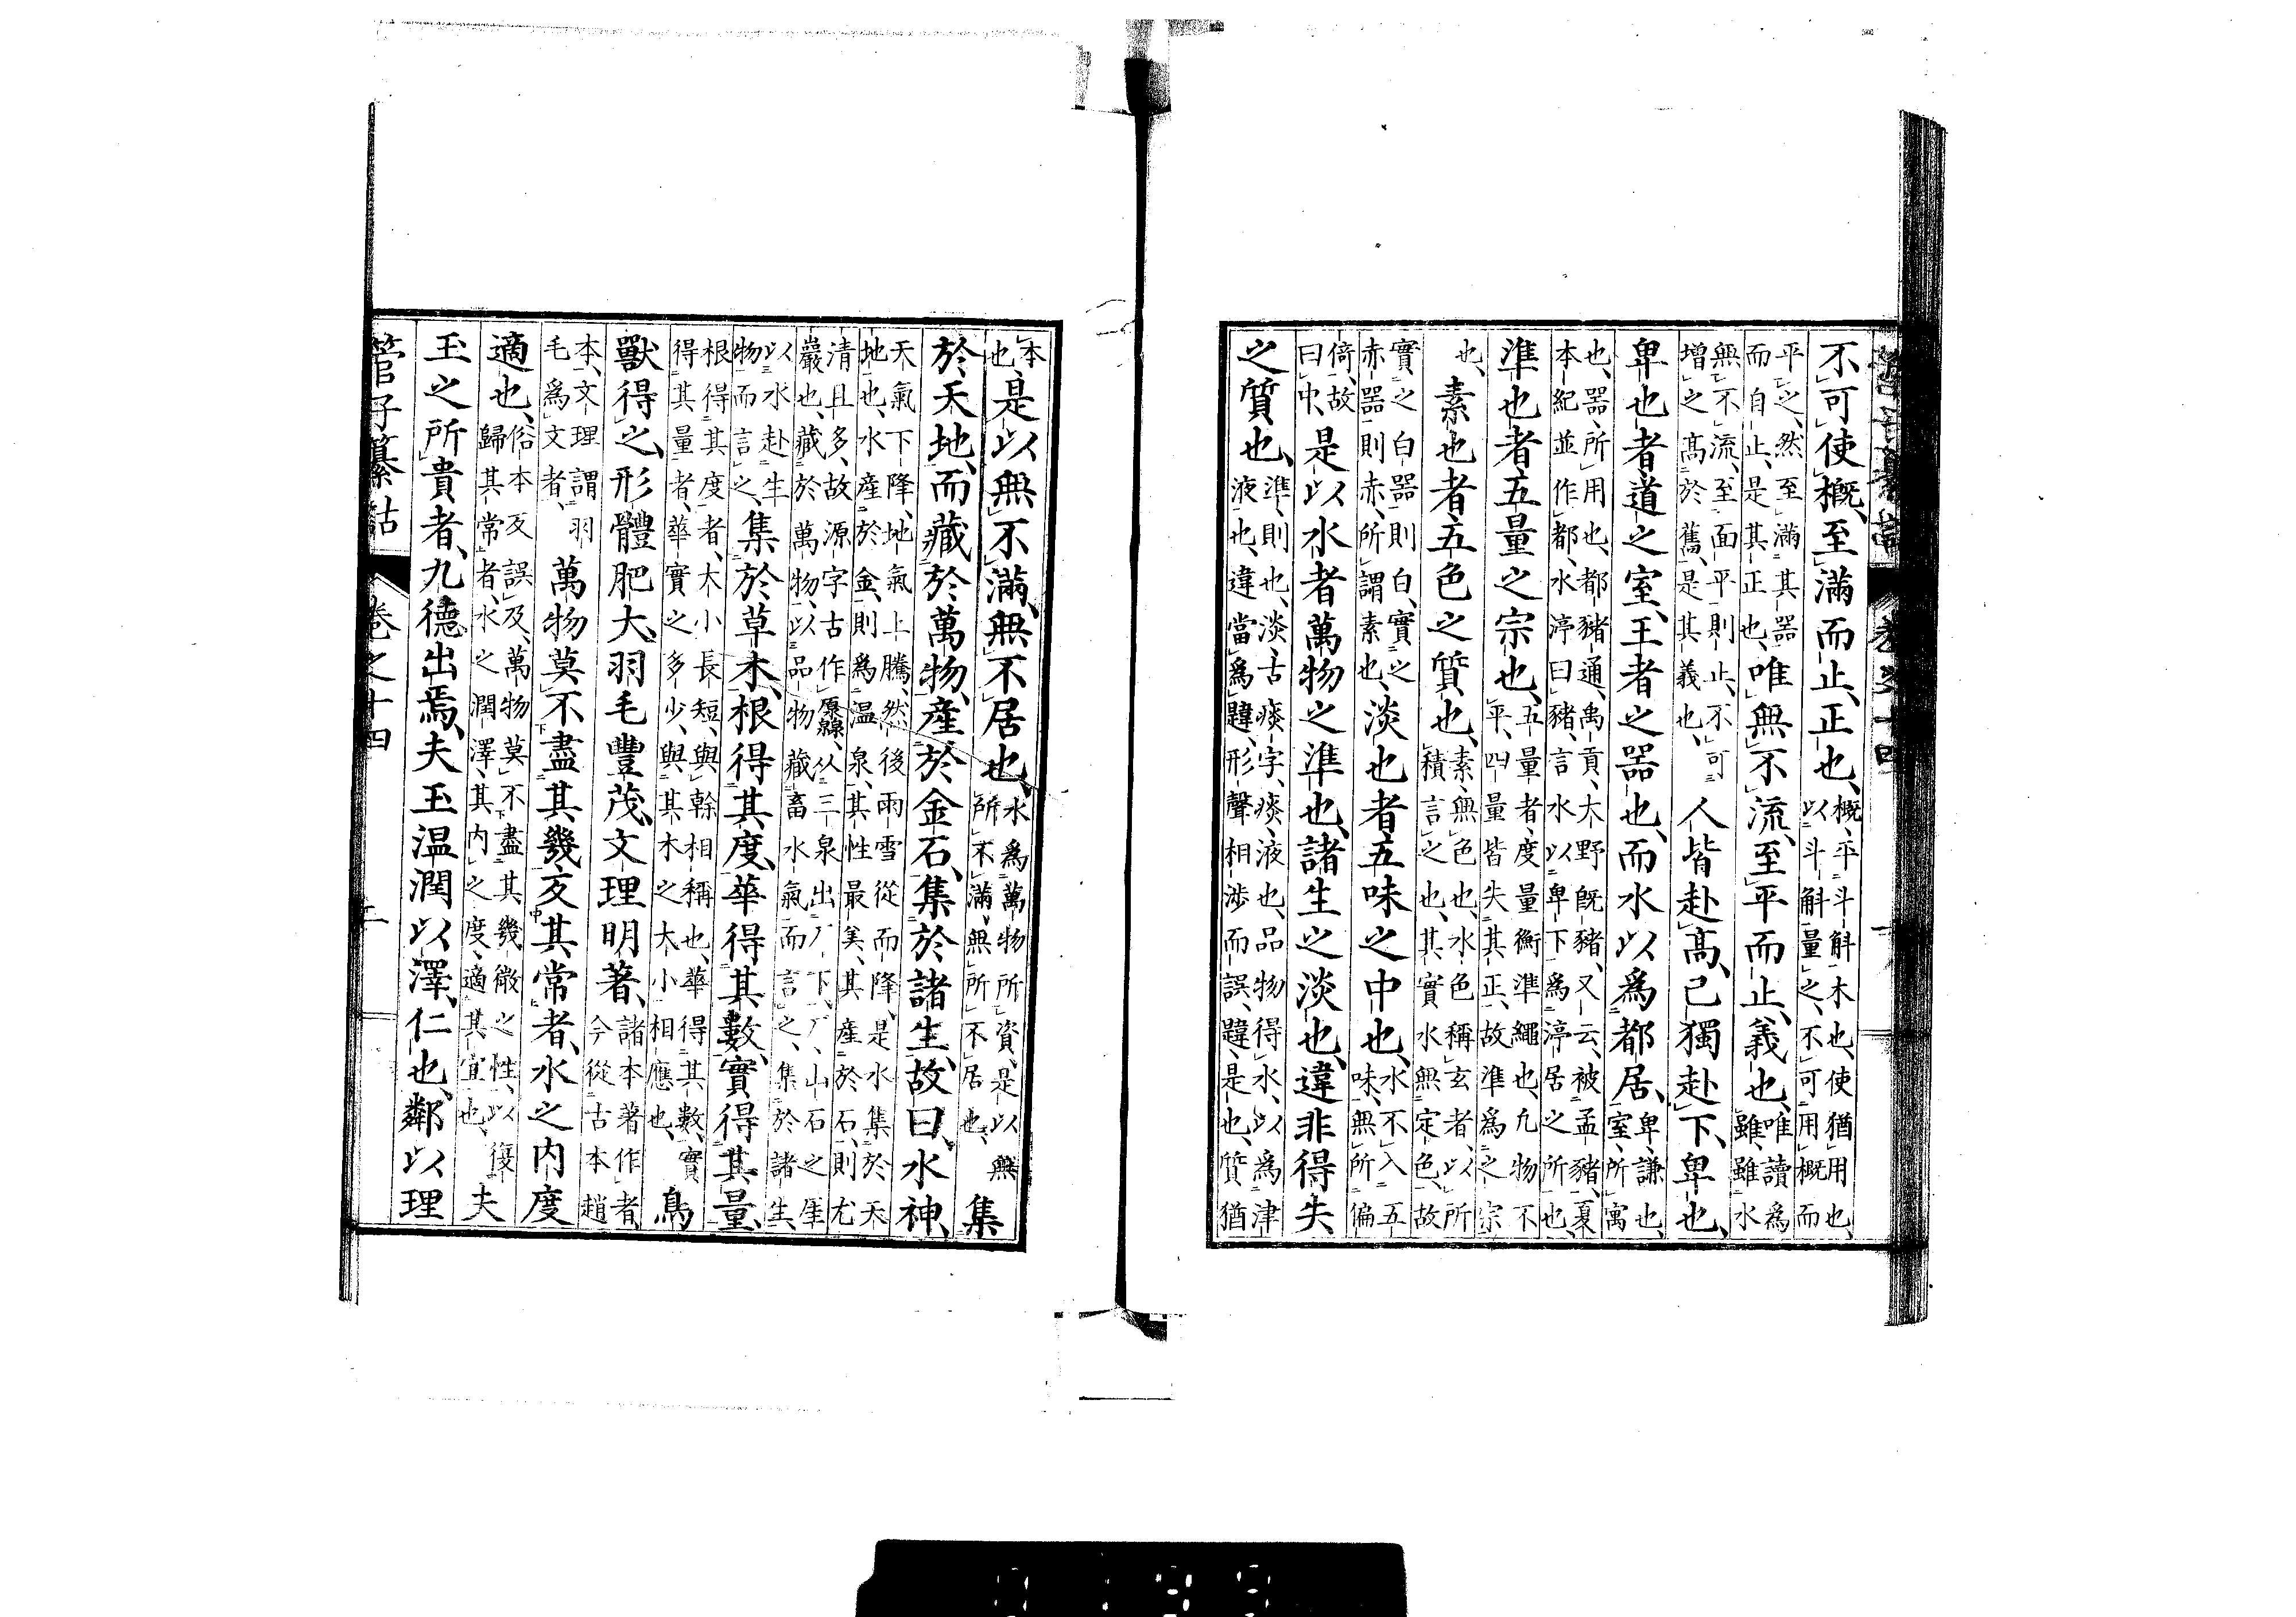 管子纂詁 卷之十四 十
不可使概、至滿而止、正也、
概、平斗斛木也、使猶用也、
以斗斛量之、不可用概而
平之、然至滿其器
而自止、是其正也、
唯無不流、至平而止、義也、
唯讀爲
雖、雖水
無不流、至面平則止、不可
增之高於舊、是其義也、
人皆赴高、己獨赴下、卑也、
卑也者道之室、王者之器也、而水以爲都居、
卑、謙也、
室、所寓
也、器、所用也、都豬通、禹貢、大野既豬、又云、被孟豬、夏
本紀並作都、水渟曰豬、言水以卑下爲渟居之所也、
準也者五量之宗也、
五量者、度量衡準繩也、凡物不
平、四量皆失其正、故準爲之宗
也、
素也者、五色之質也、
素、無色也、水色稱玄者、以所
積言之也、其實水無定色、故
實之白器則白、實之
赤器則赤、所謂素也、
淡也者五味之中也、
水不入五
味、無所偏
倚、故
曰中、
是以水者萬物之準也、諸生之淡也、違非得失
之質也、
準、則也、淡、古痰字、痰、液也、品物得水、以爲津
液也、違當爲韙、形聲相涉而誤、韙、是也、質、猶
本
也、
是以無不滿、無不居也、
水爲萬物所資、是以無
所不滿、無所不居也、
集
於天地、而藏於萬物、産於金石、集於諸生、故曰、水神、
天氣下降、地氣上騰、然後雨雪從而降、是水集於天
地也、水産於金、則爲溫泉、其性最美、其産於石、則尤
清且多、故源字古作厵、从三泉出厂下、厂、山石之厓
巖也、藏於萬物、以品物藏畜水氣而言之、集於諸生、
以水赴生
物而言之
集於草木、根得其度、華得其數、實得其量、
根得其度者、木小長短、與幹相稱也、華得其數、實
得其量者、華實之多少、與其木之大小相應也、
鳥
獸得之、形體肥大、羽毛豐茂、文理明著、
諸本著作者、
今從古本趙
本、文理謂羽
毛爲文者、
萬物莫不盡其幾、反其常者、水之内度
適也、
俗本反誤及、萬物莫不盡其幾微之性、以復
歸其常者、水之潤澤、其内之度、適其宜也、
夫
玉之所貴者、九德出焉、夫玉温潤以澤、仁也、鄰以理
管子纂詁 卷之十四